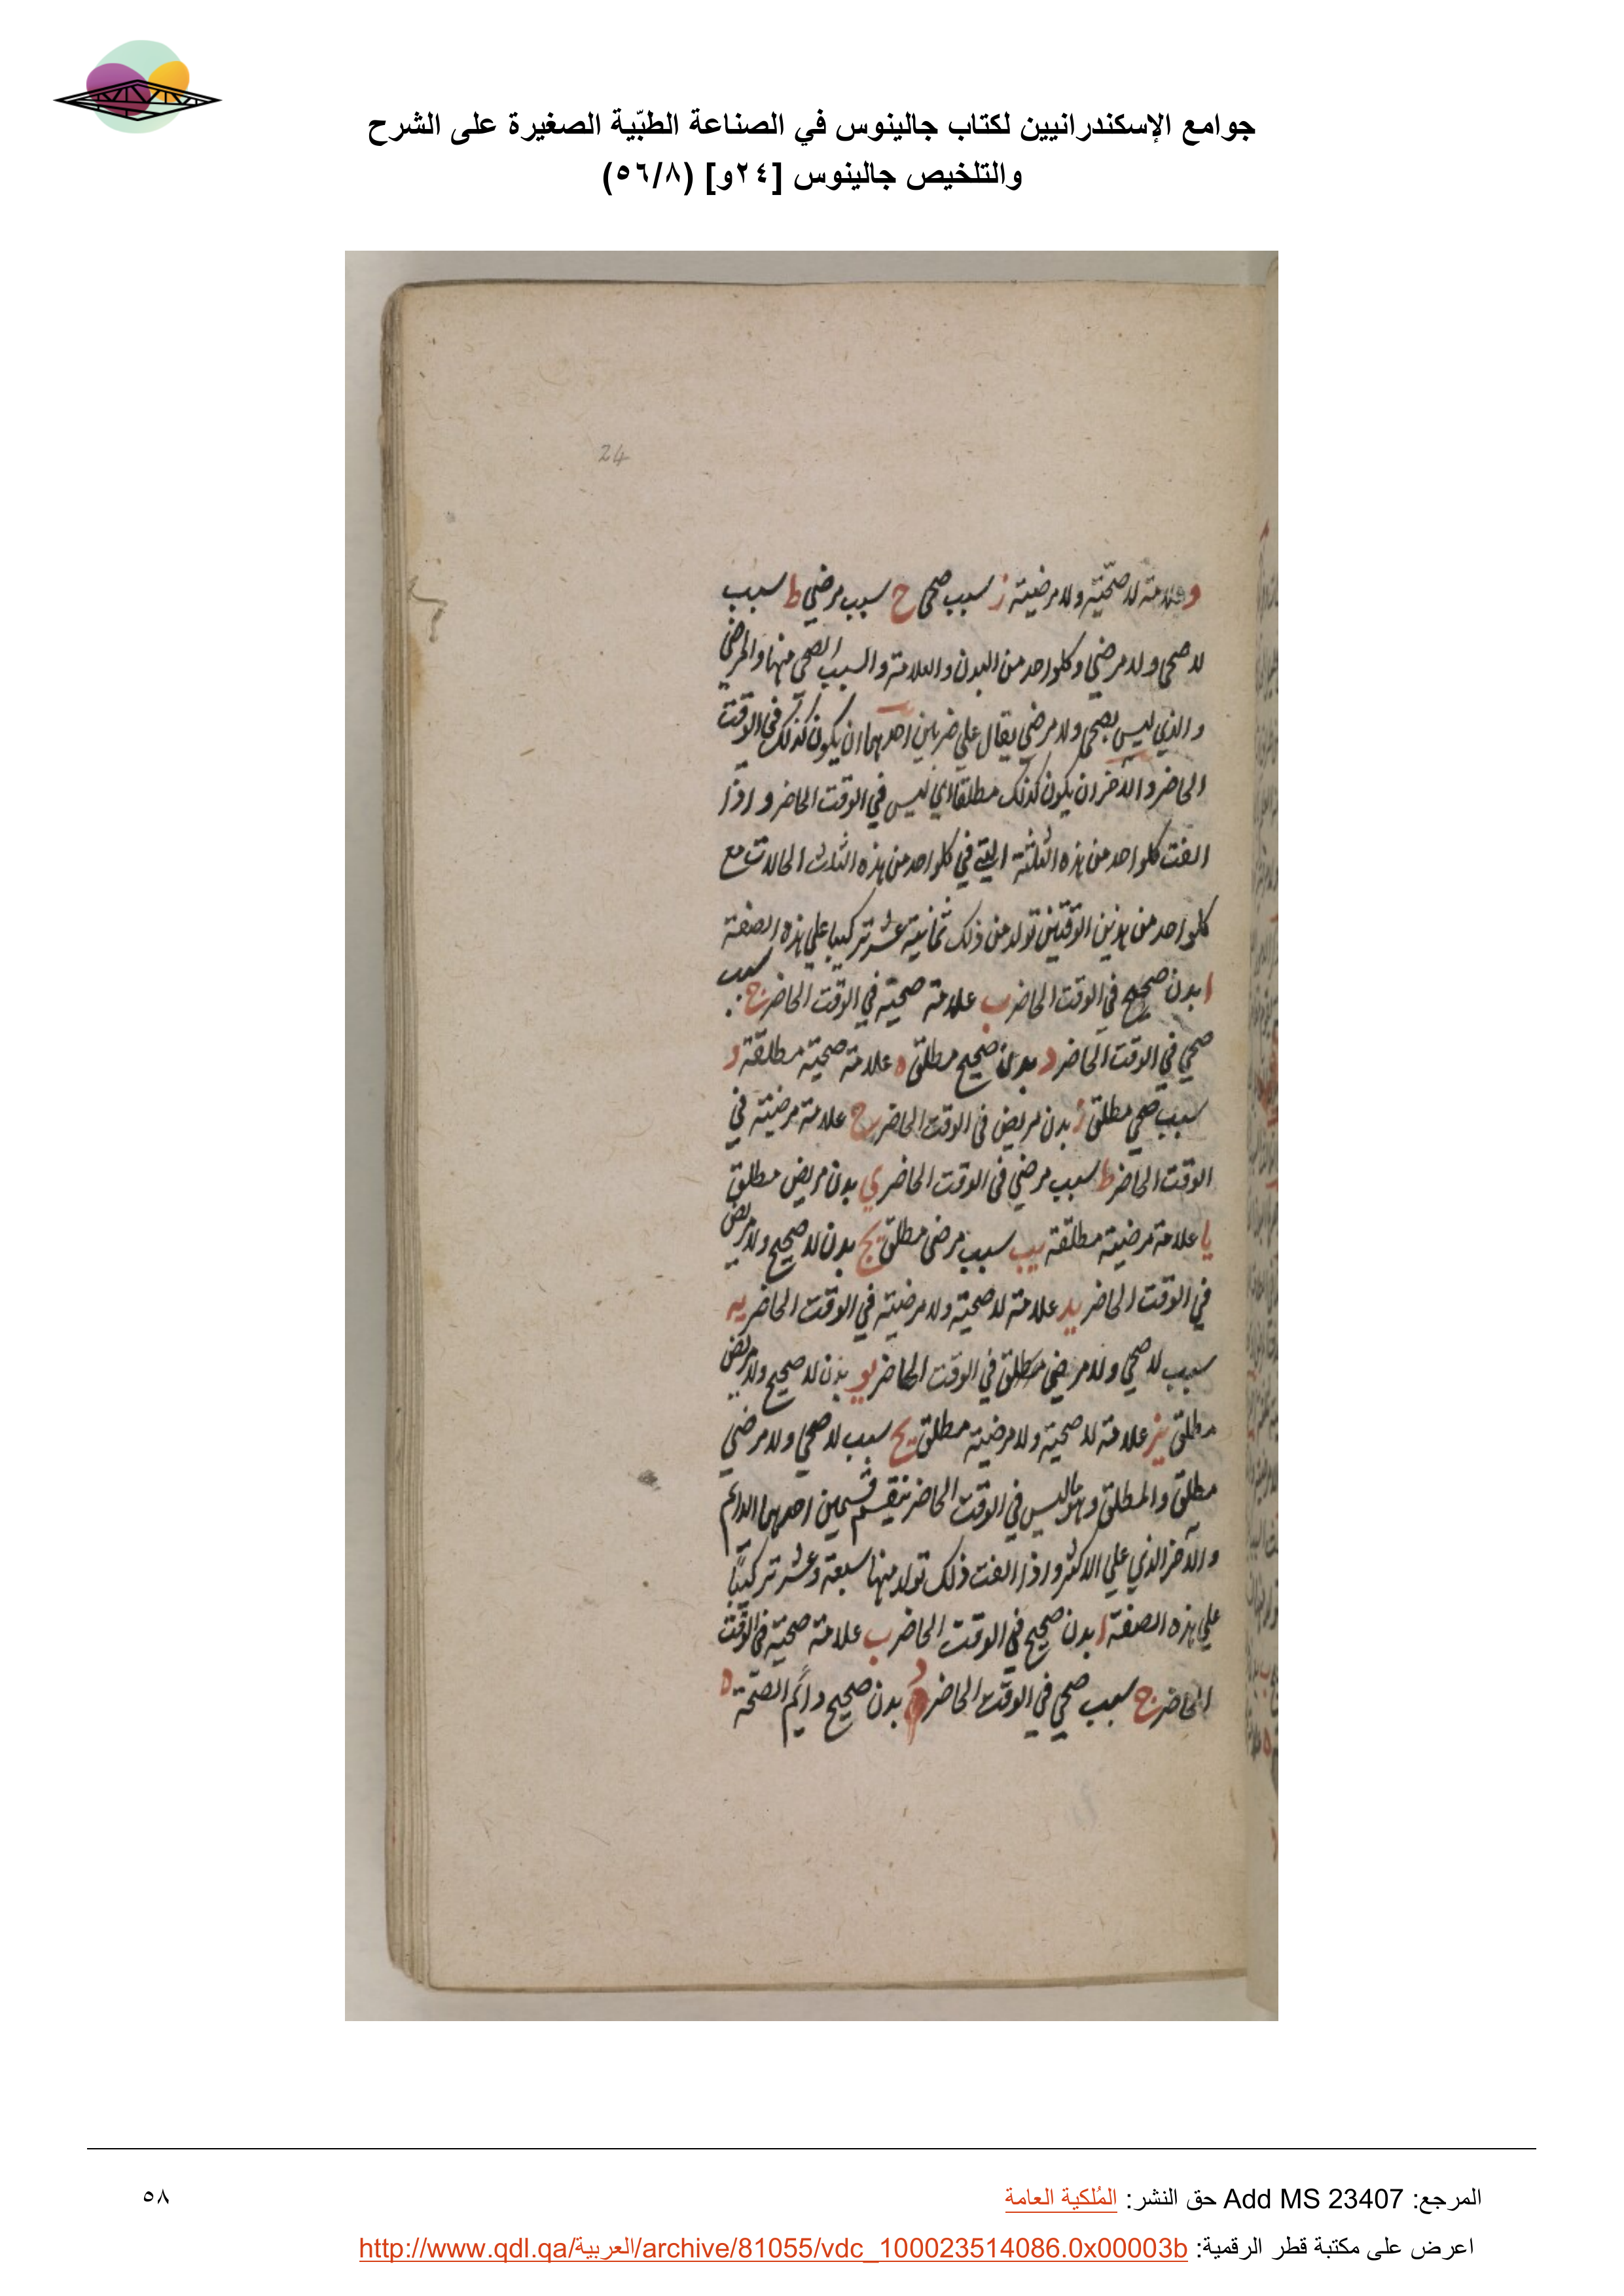 جوامع الإسكندرانيين لكتاب جالينوس في الصناعة الطبّية الصغيرة على الشرح
والتلخيص جالينوس [٢٤و] (٥٦/٨)
24
و علامة لا صحّيّة ولا مرضية ز سبب صحي ح سبب مرضي ط سبب
لا صحي ولا مرضي وكلواحد من البدن والعلامة والسبب الصحي منها والمرضي
والذي ليس بصحي ولا مرضي يقال علي ضربين احدهما ان يكون كذلك في الوقت
الحاضر والآخر ان يكون كذلك مطلقا اي ليس في الوقت الحاضر واذا
الفت كلواحد من هذه الثلثة التي في كلواحد من هذه الثلاث الحالات مع
كلواحد من هذين الوقتين تولد من ذلك ثمانية عشر تركيبا علي هذه الصفة
ا بدن صحيح في الوقت الحاضر ب علامة صحية في الوقت الحاضر ج سبب
صحي في الوقت الحاضر د بدن صحيح مطلق ه علامة صحية مطلقة و
سبب صحي مطلق ز بدن مريض في الوقت الحاضر ح علامة مرضية في
الوقت الحاضر ط سبب مرضي في الوقت الحاضر ي بدن مريض مطلق
يا علامة مرضية مطلقة يب سبب مرضي مطلق يج بدن لا صحيح ولا مريض
في الوقت الحاضر يد علامة لا صحية ولا مرضية في الوقت الحاضر يه
سبب لا صحي ولا مرضي مطلق في الوقت الحاضر يو بدن لا صحيح ولا مريض
مطلق يز علامة لا صحية ولا مرضية مطلق يح سبب لا صحي ولا مرضي
مطلق والمطلق وهو ما ليس في الوقت الحاضر ينقسم قسمين احدهما الدائم
والآخر الذي علي الاكثر واذا الفت ذلك تولد منها سبعة وعشر تركيبًا
علي هذه الصفة ا بدن صحيح في الوقت الحاضر ب علامة صحية في الوقت
الحاضر ج سبب صحي في الوقت الحاضر د بدن صحيح دائم الصحّة ه
المرجع: Add MS 23407 حق النشر: المُلكية العامة
٥٨
اعرض على مكتبة قطر الرقمية: http://www.qdl.qa/العربية/archive/81055/vdc_100023514086.0x00003b